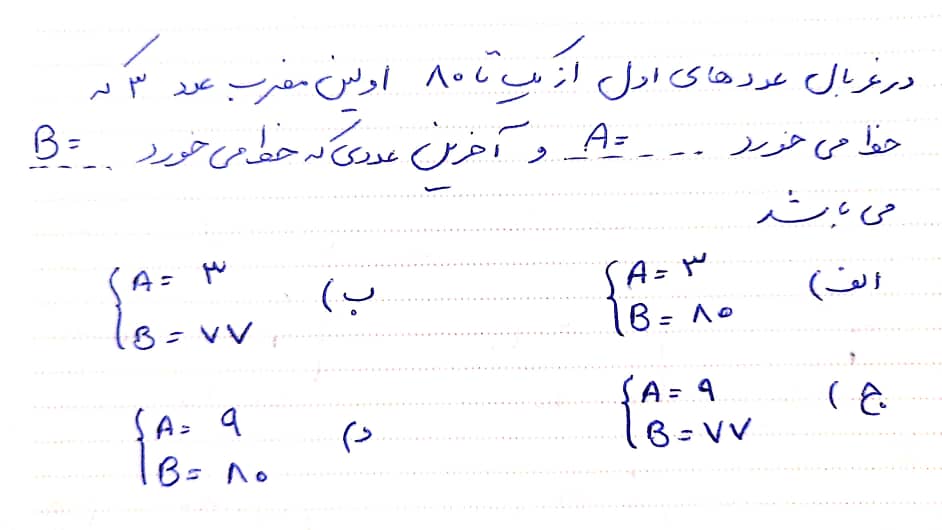 در غربال عددهای اول از یک تا ۸۰ اولین مضرب عدد ۳ که
خط می خورد .... A= و آخرین عددی که خط می خورد .... B=
می باشد
الف) { A = ۳ B = ۸۰ ب) { A = ۳ B = ۷۷
ج) { A = ۹ B = ۷۷ د) { A = ۹ B = ۸۰